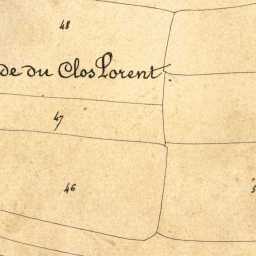 48
de du Clos Lorent
47
46